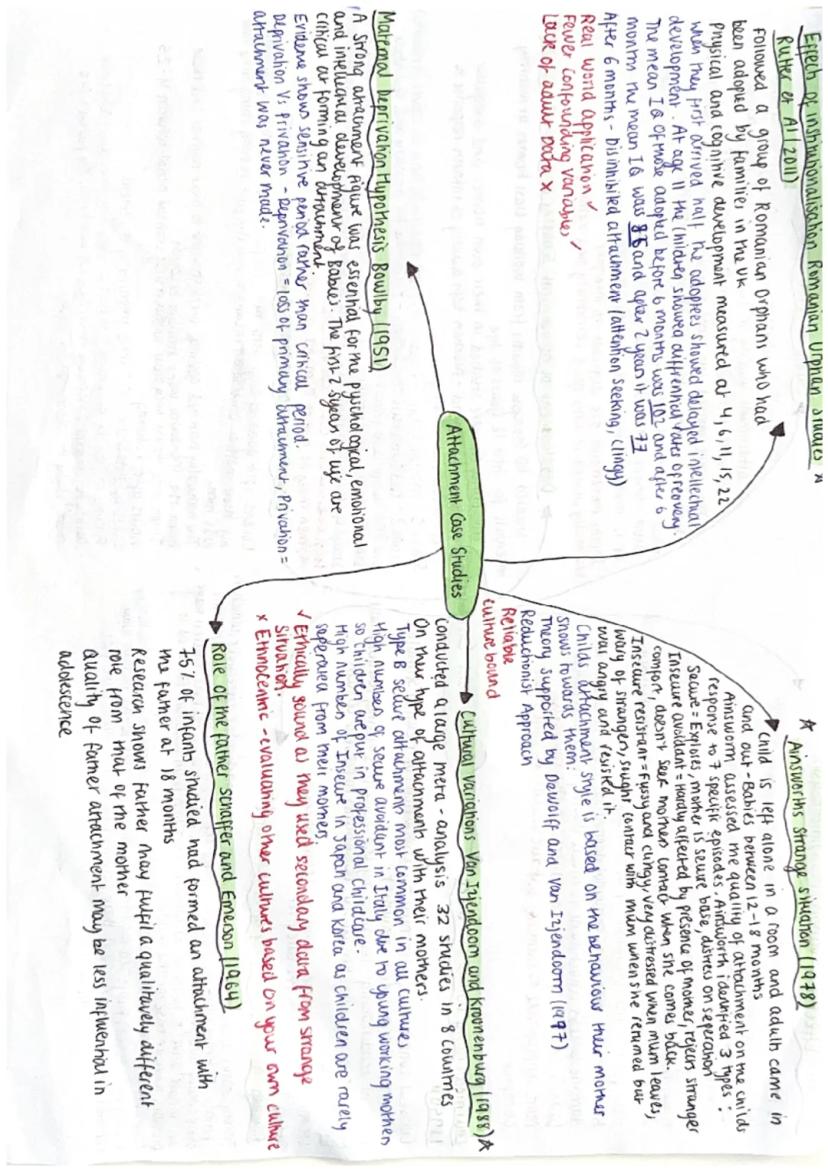 Effects of institutionalisation Romanian Orphan Studies ✶
Rutter et Al (2011)
Followed a group of Romanian Orphans who had
been adopted by families in the UK
Physical and cognitive development measured at 4, 6, 11, 15, 22
when they first arrived half the adoptees showed delayed intellectual
development. At age 11 the children showed differential rates of recovery.
The mean IQ of those adopted before 6 months was 102 and after 6
months the mean IQ was 86 and after 2 years it was 77
After 6 months - Disinhibited attachment (attention seeking, clingy)
Real world application ✓
Fewer confounding variables ✓
Lack of adult Data ×
Maternal Deprivation Hypothesis Bowlby (1951)
A strong attachment figure was essential for the psychological, emotional
and intellectual development of Babies. The first 2.5 years of life are
critical at forming an attachment.
Evidence shows sensitive period rather than critical period.
Deprivation Vs Privation - Deprivation = loss of primary attachment, Privation =
attachment was never made.
Attachment Case Studies
✶ Ainsworths Strange situation (1978)
Child is left alone in a room and adults came in
and out - Babies between 12-18 months
Ainsworth assessed the quality of attachment on the childs
response to 7 specific episodes. Ainsworth identified 3 types:
Secure = Explores, mother is secure base, distress on seperation
Insecure avoidant = Hardly affected by presence of mother, rejects stranger
comfort, doesn't seek mothers contact when she comes back.
Insecure resistant = Fussy and clingy, very distressed when mum leaves,
wary of strangers, sought contact with mum when she returned but
was angry and resisted it.
Childs attachment style is based on the behaviour their mother
shows towards them:
Theory supported by DeWolff and Van Izjendoorn (1997)
Reductionist Approach
Reliable
Culture bound
Cultural Variations Van Izjendoorn and Kroonenburg (1988) ✶
Conducted a large meta-analysis 32 studies in 8 countries
On their type of attachment with their mothers.
Type B secure attachments most common in all cultures
High numbers of secure avoidant in Italy due to young working mothers
so children are put in professional childcare.
High numbers of Insecure in Japan and Korea as children are rarely
seperated from their mothers
✓ Ethically sound as they used secondary data from strange
situation.
× Ethnocentric - evaluating other cultures based on your own culture
Role of the father Schaffer and Emerson (1964)
75% of infants studied had formed an attachment with
the father at 18 months
Research shows father may fulfil a qualitatively different
role from that of the mother
Quality of father attachment may be less influential in
adolescence